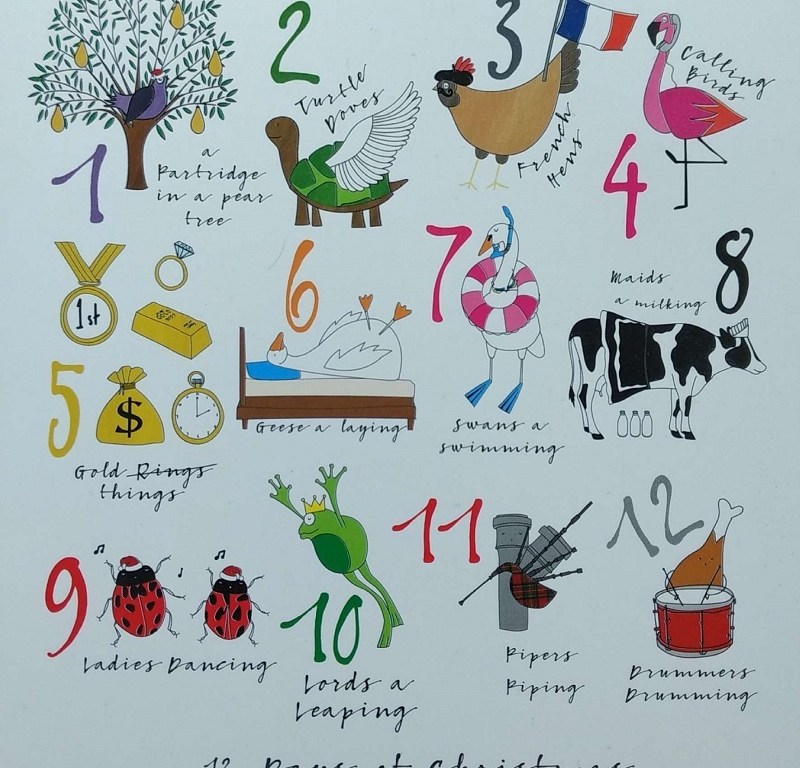 1
a
Partridge
in a pear
tree
2
Turtle
Doves
3
French
Hens
4
Calling
Birds
1st
$
5
Gold Rings
things
6
Geese a laying
7
Swans a
swimming
8
Maids
a milking
9
Ladies Dancing
10
Lords a
Leaping
11
Pipers
Piping
12
Drummers
Drumming
12 Days of Christmas